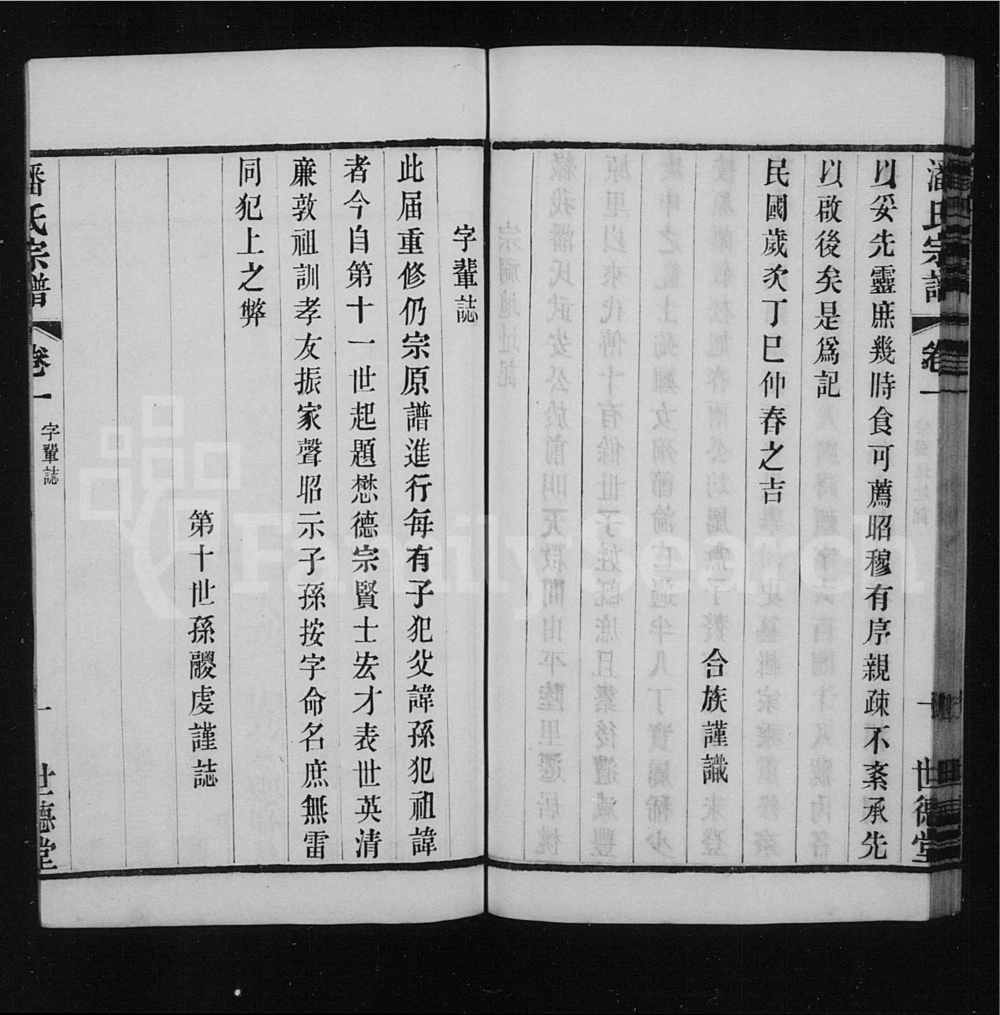 潘氏宗譜 卷一 一 世德堂
以妥先靈庶幾時食可薦昭穆有序親疎不紊承先
以啟後矣是爲記
民國歲次丁巳仲春之吉
合族謹識
字輩誌
此届重修仍宗原譜進行每有子犯父諱孫犯祖諱
者今自第十一世起題懋德宗賢士宏才表世英清
廉敦祖訓孝友振家聲昭示子孫按字命名庶無雷
同犯上之弊
第十世孫騣虔謹誌
潘氏宗譜 卷一 字輩誌 一 世德堂
FamilySearch